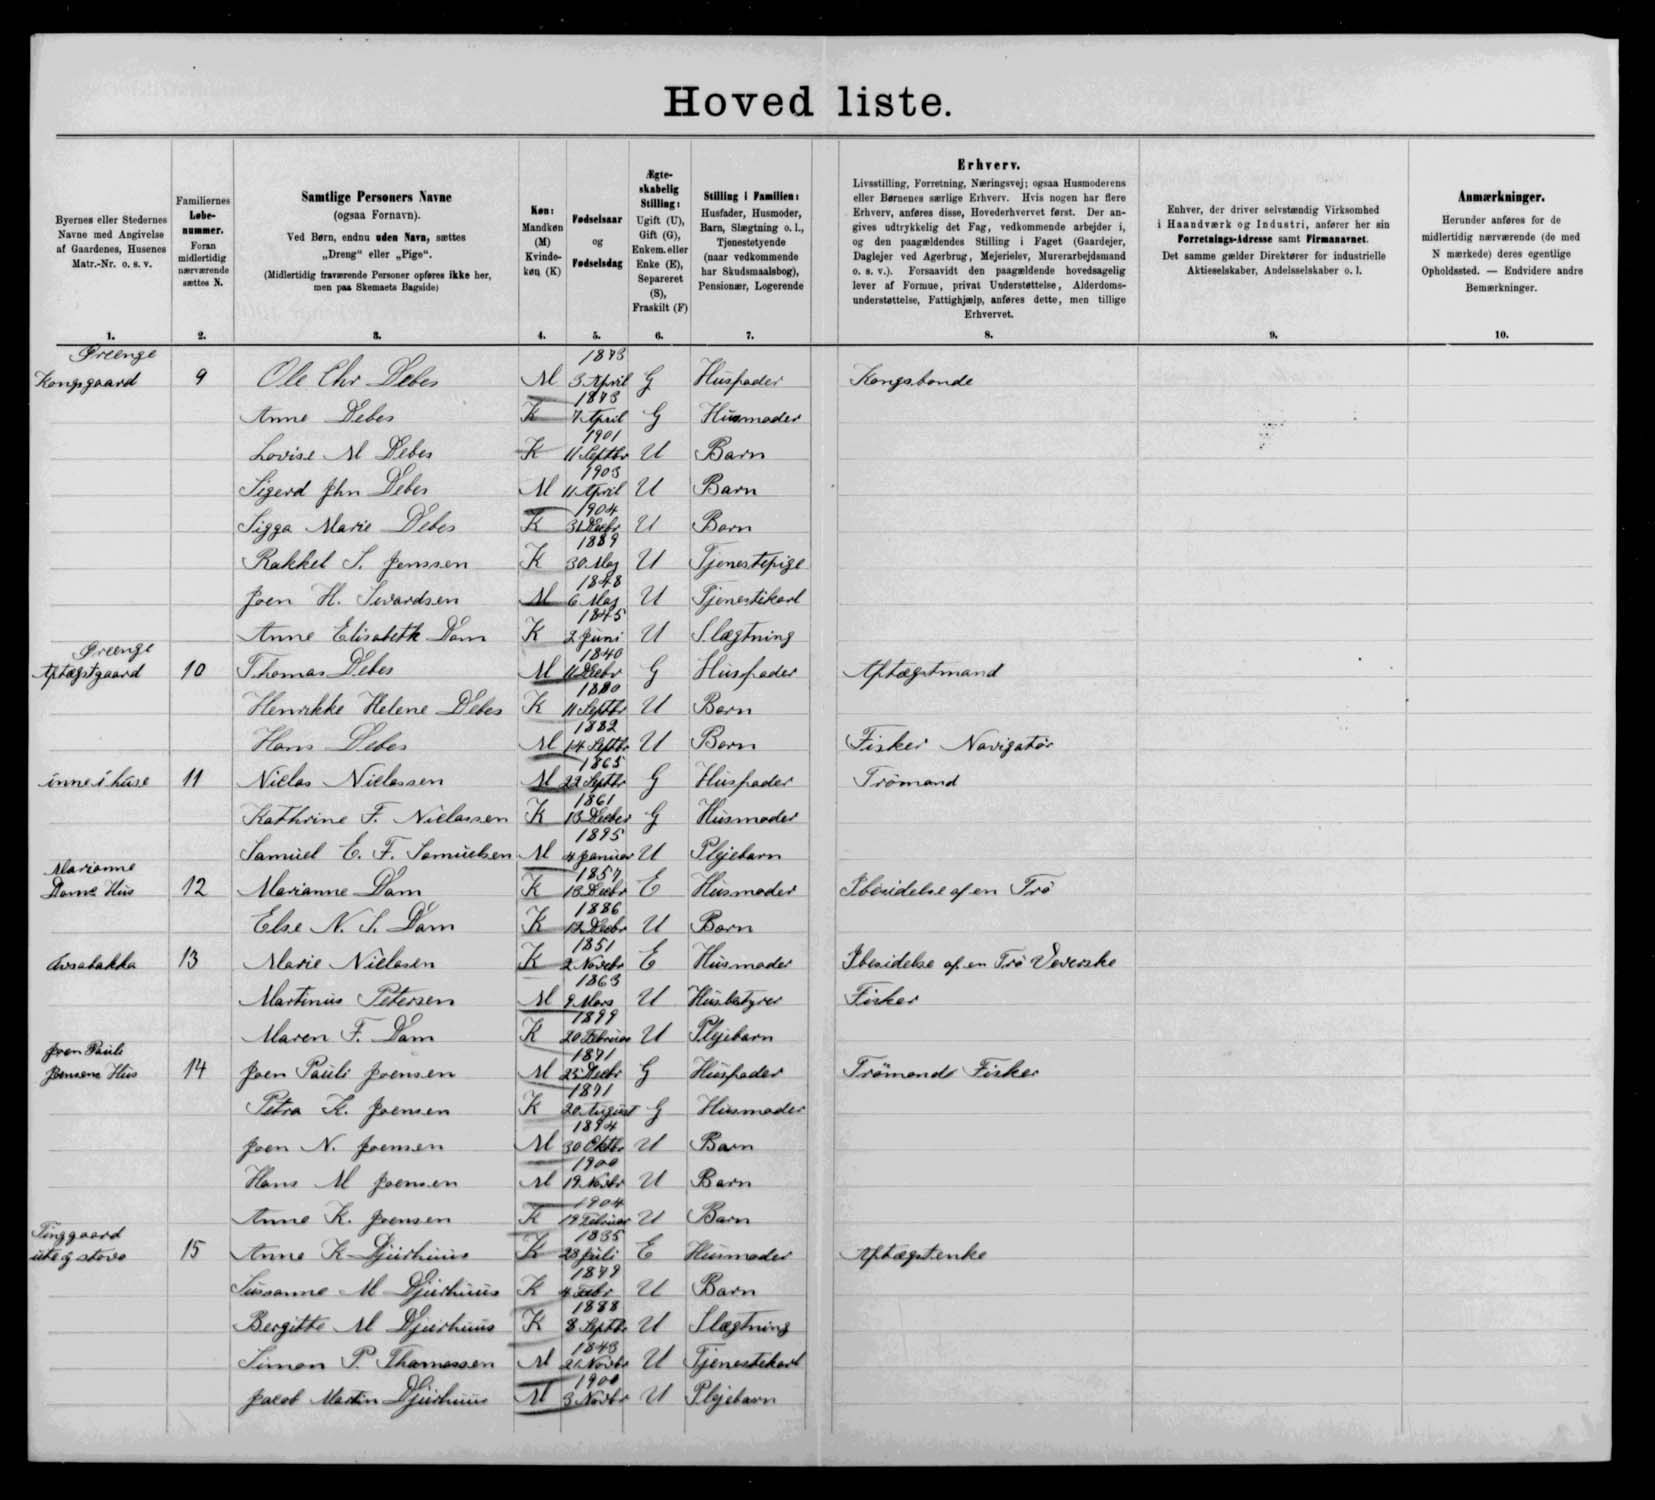 Hoved liste.
Byernes eller Stedernes Navne med Angivelse af Gaardenes, Husenes Matr.-Nr. o. s. v.
Familiernes Løbenummer. Foran midlertidig nærværende sættes N.
Samtlige Personers Navne (ogsaa Fornavn). Ved Børn, endnu uden Navn, sættes „Dreng“ eller „Pige“. (Midlertidig fraværende Personer opføres ikke her, men paa Skemaets Bagside)
Køn: Mandkøn (M) Kvindekøn (K)
Fødselsaar og Fødselsdag
Ægteskabelig Stilling: Ugift (U), Gift (G), Enkem. eller Enke (E), Separeret (S), Fraskilt (F)
Stilling i Familien: Husfader, Husmoder, Barn, Slægtning o. l., Tjenestetyende (naar vedkommende har Skudsmaalsbog), Pensionær, Logerende
Erhverv. Livsstilling, Forretning, Næringsvej; ogsaa Husmoderens eller Børnenes særlige Erhverv. Hvis nogen har flere Erhverv, anføres disse, Hovederhvervet først. Der angives udtrykkelig det Fag, vedkommende arbejder i, og den paagældendes Stilling i Faget (Gaardejer, Daglejer ved Agerbrug, Mejerielev, Murerarbejdsmand o. s. v.). Forsaavidt den paagældende hovedsagelig lever af Formue, privat Understøttelse, Alderdomsunderstøttelse, Fattighjælp, anføres dette, men tillige Erhvervet.
Enhver, der driver selvstændig Virksomhed i Haandværk og Industri, anfører her sin Forretnings-Adresse samt Firmanavnet. Det samme gælder Direktører for industrielle Aktieselskaber, Andelsselskaber o. l.
Anmærkninger. Herunder anføres for de midlertidig nærværende (de med N mærkede) deres egentlige Opholdssted. — Endvidere andre Bemærkninger.
1. 2. 3. 4. 5. 6. 7. 8. 9. 10.
Kongsgaard 9 Ole Chr Debes M 1873 3 April G Husfader Kongsbonde
Anne Debes K 1873 7 April G Husmoder
Lovise M Debes K 1901 11 Septbr U Barn
Sigerd Jhn Debes M 1903 11 April U Barn
Sigga Marie Debes K 1904 31 Decbr U Barn
Rakkel S. Jenssen K 1889 30 Maj U Tjenestepige
Joen H. Sivardsen M 1848 6 Maj U Tjenestekarl
Anne Elisabeth Dam K 1845 2 Juni U Slægtning
Aftægtgaard 10 Thomas Debes M 1840 11 Decbr G Husfader Aftægtmand
Henrikke Helene Debes K 1880 11 Septbr U Barn
Hans Debes M 1882 14 Septbr U Barn Fisker Navigatør
inne i huse 11 Niclas Niclassen M 1865 22 Septbr G Husfader Trømand
Kathrine F. Niclassen K 1861 13 Decber G Husmoder
Samuel E. F. Samuelsen M 1895 4 Januar U Plejebarn
Marianne
Dams Hus 12 Marianne Dam K 1857 13 Decbr E Husmoder Ibesidelse af en Trø
Else N. S. Dam K 1886 12 Decbr U Barn
13 Marie Niclasen K 1851 2 Novebr E Husmoder Ibesidelse af en Trø Veverske
Martinus Petersen M 1863 9 Mars U Husbestyrer Fisker
Maren F. Dam K 1899 20 Februar U Plejebarn
Joen Pauli
Joensens Hus 14 Joen Pauli Joensen M 1871 25 Decbr G Husfader Trømand Fisker
Petra K. Joensen K 1871 20 August G Husmoder
Joen N. Joensen M 1894 30 Oktbr U Barn
Hans M Joensen M 1900 19 Novbr U Barn
Anne K. Joensen K 1904 19 Februar U Barn
Tinggaard
15 Anne K Djurhuus K 1835 28 Juli E Husmoder Aftægtenke
Susanne M Djurhuus K 1879 4 Febr U Barn
Bergitte M Djurhuus K 1888 8 Septbr U Slægtning
Simon P. Thomassen M 1843 21 Novbr U Tjenestekarl
Jacob Martin Djurhuus M 1900 3 Novbr U Plejebarn